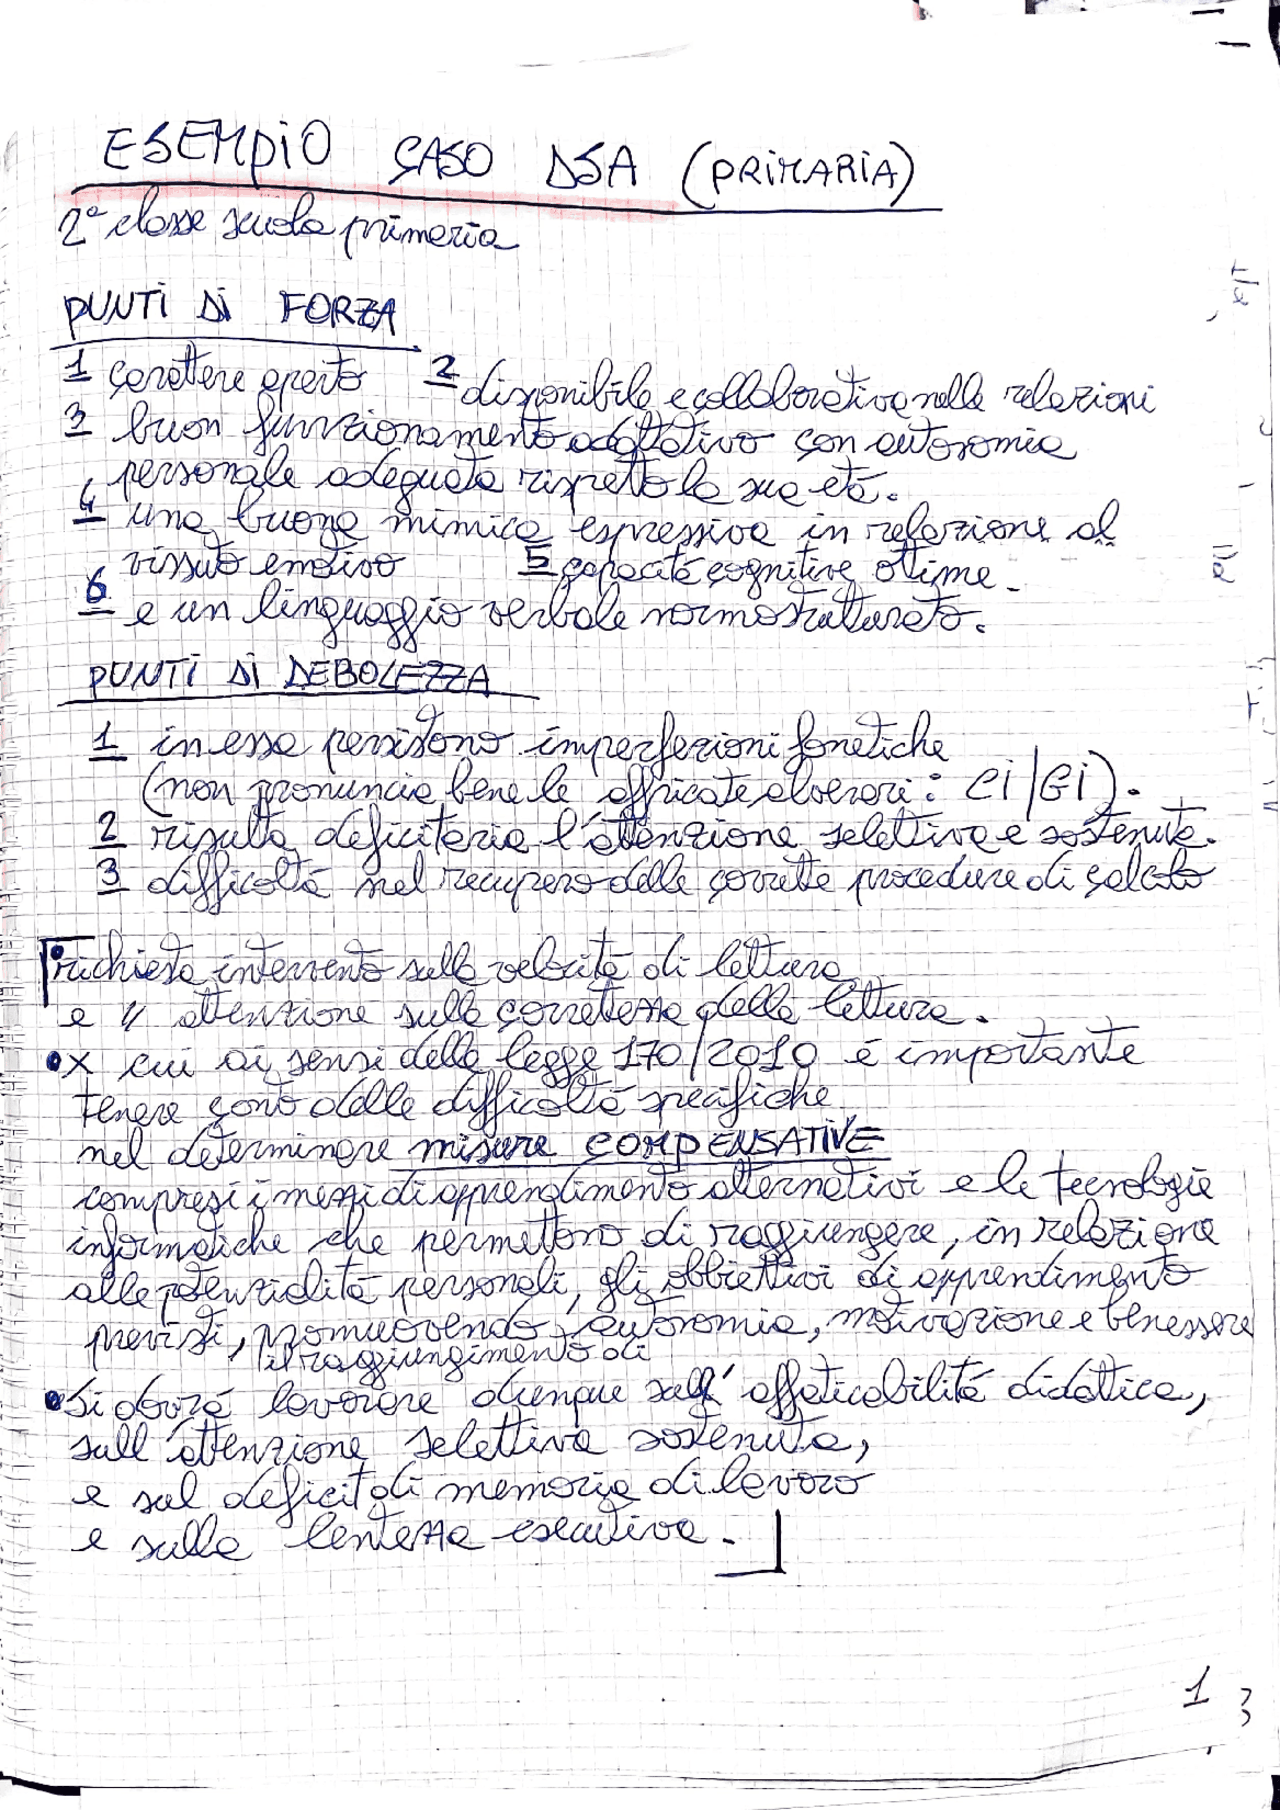 ESEMPIO CASO DSA (PRIMARIA)
2ª classe scuola primaria
PUNTI DI FORZA
1 carattere aperto 2 disponibile e collaborativa nelle relazioni
3 buon funzionamento adattativo con autonomia
personale adeguata rispetto la sua età.
4 una buona mimica espressiva in relazione al
vissuto emotivo 5 capacità cognitive ottime.
6 e un linguaggio verbale normostrutturato.
PUNTI DI DEBOLEZZA
1 in essa persistono imperfezioni fonetiche
(non pronuncia bene le affricate alveorari: CI/GI).
2 risulta deficitaria l'attenzione selettiva e sostenuta.
3 difficoltà nel recupero delle corrette procedure di calcolo
• richiesto intervento sulla velocità di lettura
e // attenzione sulla correttezza della lettura.
• x cui ai sensi della legge 170/2010 é importante
tenere conto delle difficoltà specifiche
nel determinare misure COMPENSATIVE
compresi i mezzi di apprendimento alternativi e le tecnologie
informatiche che permettono di raggiungere, in relazione
alle potenzialità personali, gli obbiettivi di apprendimento
previsti, promuovendo autonomia, motivazione e benessere
il raggiungimento di
• Si dovrà lavorare dunque sull'affaticabilità didattica,
sull'attenzione selettiva sostenuta,
e sul deficit di memoria di lavoro
e sulla lentezza esecutiva.
1 3